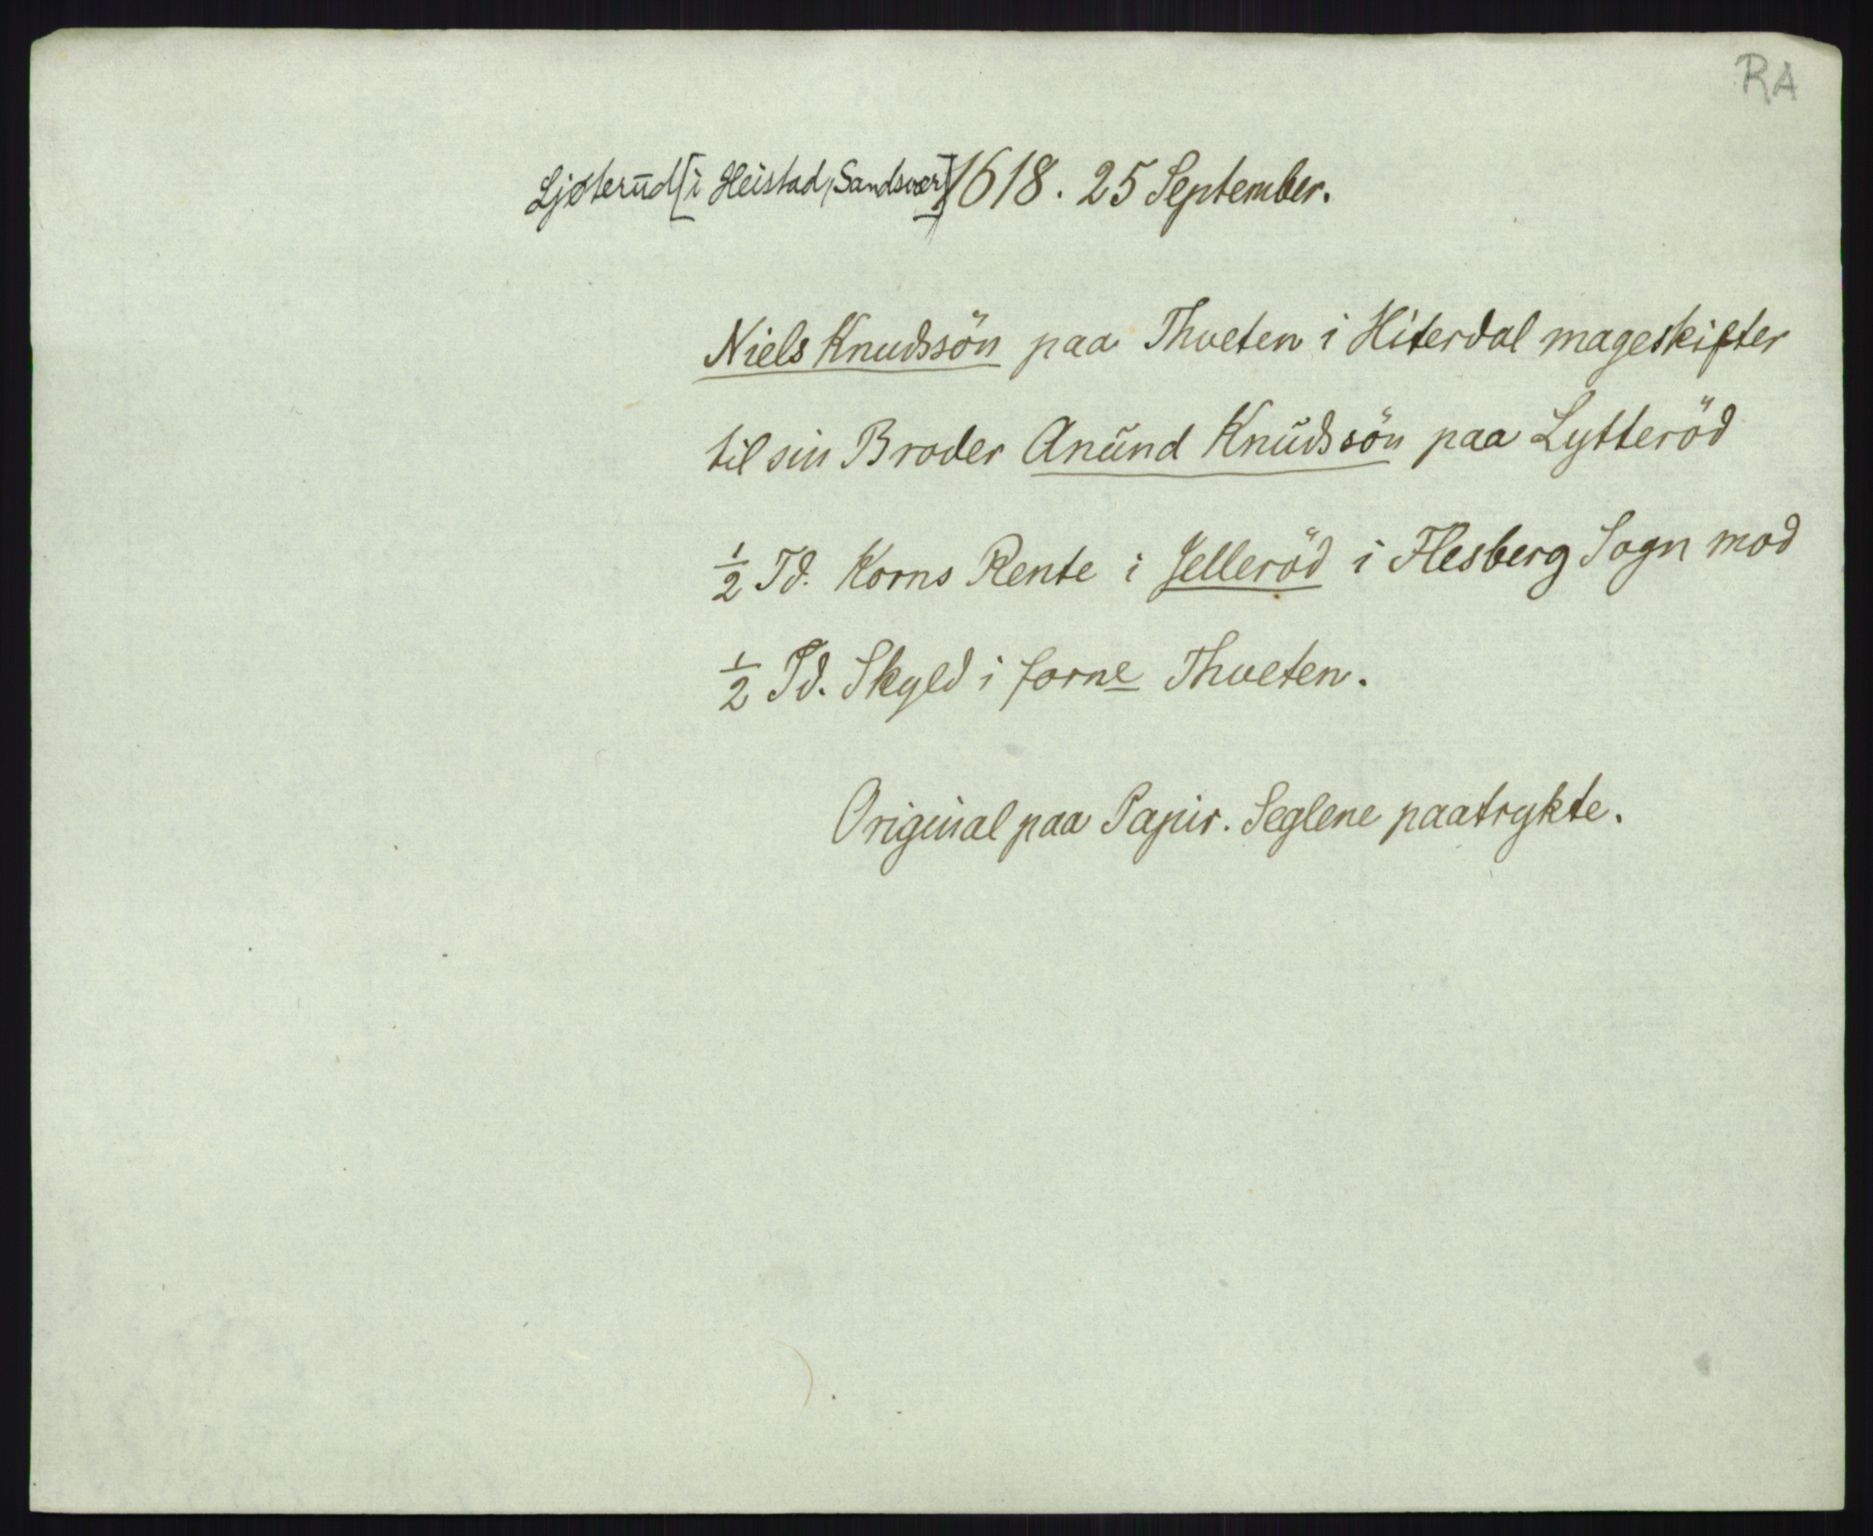 RA
Ljøterud [i Heistad, Sandsvær] 1618. 25 September.
Niels Knudssön paa Thveten i Hiterdal mageskifter
til sin Broder Anund Knudssön paa Lytteröd
½ Td. Korns Rente i Jelleröd i Flesberg Sogn mod
½ Td. Skyld i forne Thveten.
Original paa Papir. Seglene paatrykte.